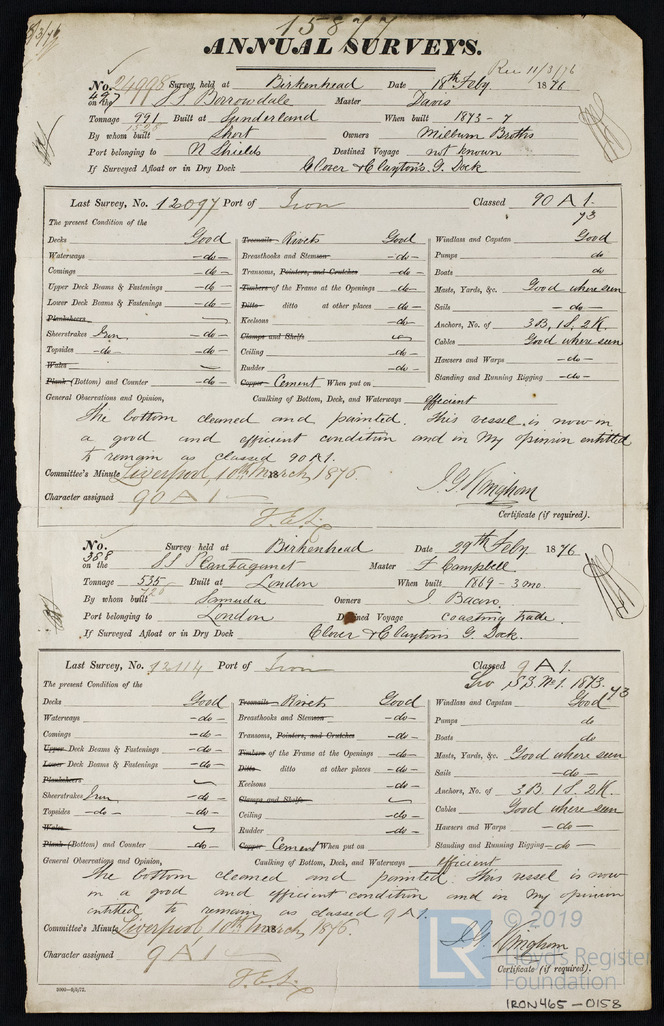 15877
8/3/76
ANNUAL SURVEYS.
Rec 11/3/76
No. 24998 Survey held at Birkenhead Date 18th Feby 1876
497 on the SS Borrowdale Master Davis
Tonnage 991 Built at Sunderland When built 1873-7
By whom built Short Owners Milburn Broths
Port belonging to N Shields Destined Voyage not known
If Surveyed Afloat or in Dry Dock Clover & Clayton's G. Dock
Last Survey, No. 12097 Port of Iron Classed 90 A 1.
73
The present Condition of the
Decks Good Treenails Rivets Good Windlass and Capstan Good
Waterways -do- Breasthooks and Stemson -do- Pumps do
Comings -do- Transoms, Pointers, and Crutches -do- Boats do
Upper Deck Beams & Fastenings -do- Timbers of the Frame at the Openings -do- Masts, Yards, &c. Good where seen
Lower Deck Beams & Fastenings -do- Ditto ditto at other places -do- Sails -do-
Planksheers Keelsons -do- Anchors, No. of 3B, 1S, 2K.
Sheerstrakes Iron -do- Clamps and Shelfs Cables Good where seen
Topsides -do- -do- Ceiling -do- Hawsers and Warps -do-
Wales Rudder -do- Standing and Running Rigging -do-
Plank (Bottom) and Counter -do- Copper Cement When put on
General Observations and Opinion, Caulking of Bottom, Deck, and Waterways efficient
The bottom cleaned and painted. This vessel is now in
a good and efficient condition and in my opinion entitled
to remain as classed 90A1.
Committee's Minute Liverpool, 10th March, 1876.
Character assigned 90 A 1
Certificate (if required).
No. Survey held at Birkenhead Date 29th Feby 1876
358 on the SS Plantagenet Master F Campbell
Tonnage 535 Built at London When built 1869 - 3 mo.
By whom built Samuda Owners J. Bacon
Port belonging to London Destined Voyage coasting trade.
If Surveyed Afloat or in Dry Dock Clover & Clayton's G. Dock.
Last Survey, No. 12114 Port of Iron Classed 9 A 1.
The present Condition of the
Decks Good Treenails Rivets Good Windlass and Capstan Good
Waterways -do- Breasthooks and Stemson -do- Pumps do
Comings -do- Transoms, Pointers, and Crutches -do- Boats do
Upper Deck Beams & Fastenings -do- Timbers of the Frame at the Openings -do- Masts, Yards, &c. Good where seen
Lower Deck Beams & Fastenings -do- Ditto ditto at other places -do- Sails -do-
Planksheers Keelsons -do- Anchors, No. of 3B. 1S. 2K.
Sheerstrakes Iron -do- Clamps and Shelfs Cables Good where seen
Topsides -do- -do- Ceiling -do- Hawsers and Warps -do-
Wales Rudder -do- Standing and Running Rigging -do-
Plank (Bottom) and Counter -do- Copper Cement When put on
General Observations and Opinion, Caulking of Bottom, Deck, and Waterways efficient
The bottom cleaned and painted. This vessel is now
in a good and efficient condition and in my opinion
entitled to remain as classed 9 A1.
Committee's Minute Liverpool, 10th March, 1876.
Character assigned 9 A 1
Certificate (if required).
LR © 2019
Lloyd's Register
Foundation
IRON465-0158